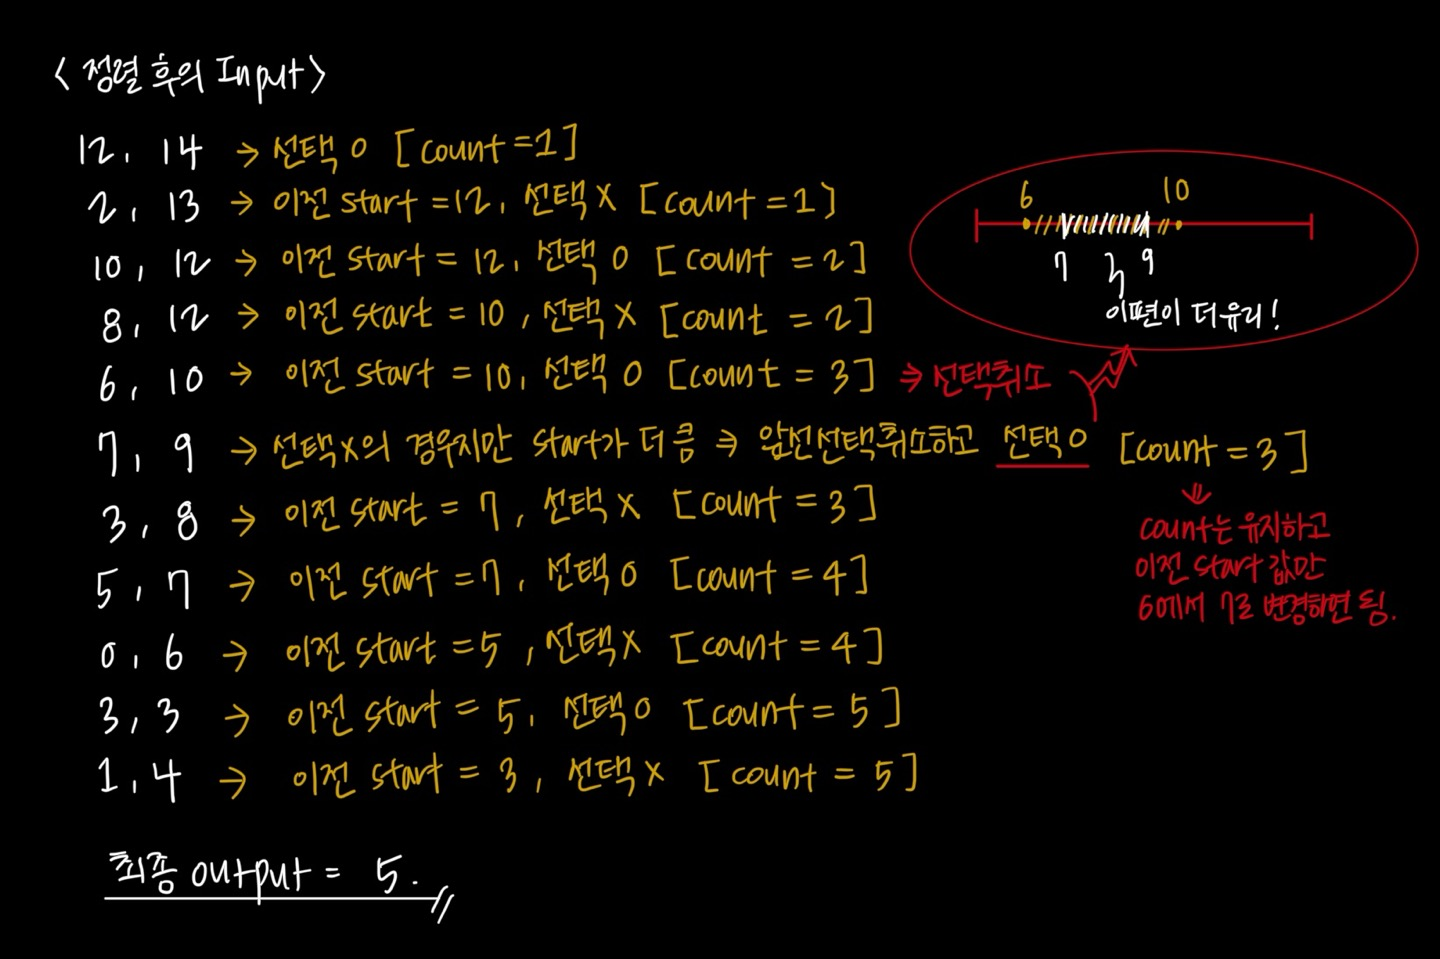 < 정렬 후의 Input >
12, 14 → 선택 O [count =1]
2, 13 → 이전 start =12, 선택 X [count =1]
10, 12 → 이전 start = 12, 선택 O [count = 2]
8, 12 → 이전 start = 10, 선택 X [count = 2]
6, 10 → 이전 start = 10, 선택 O [count = 3] ⇒ 선택취소
7, 9 → 선택X의 경우지만 start가 더 큼 ⇒ 앞선선택취소하고 선택 O [count = 3]
3, 8 → 이전 start = 7, 선택 X [count = 3]
5, 7 → 이전 start =7, 선택 O [count = 4]
0, 6 → 이전 start =5, 선택X [count = 4]
3, 3 → 이전 start = 5, 선택 O [count = 5]
1, 4 → 이전 start = 3, 선택 X [count = 5]
최종 output = 5.
6 10
7 9
이편이 더유리!
⇓
count는 유지하고
이전 start 값만
6에서 7로 변경하면 됨.